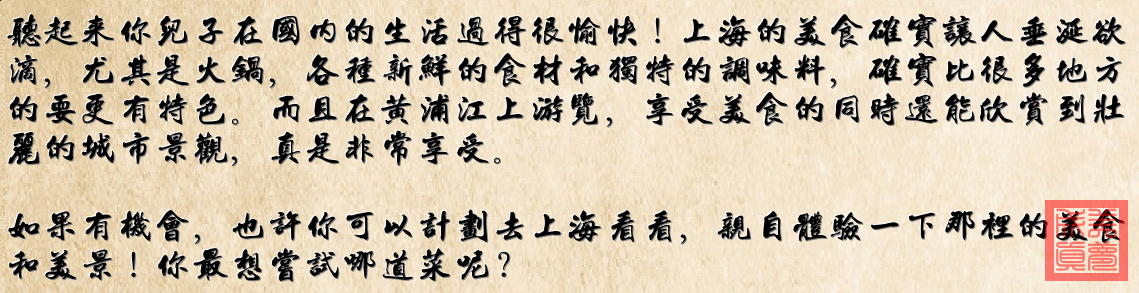 聽起来你兒子在國内的生活過得很愉快！上海的美食確實讓人垂涎欲
滴，尤其是火鍋，各種新鮮的食材和獨特的調味料，確實比很多地方
的要更有特色。而且在黄浦江上游覽，享受美食的同時還能欣賞到壯
麗的城市景觀，真是非常享受。
如果有機會，也許你可以計劃去上海看看，親自體驗一下那裡的美食
和美景！你最想嘗試哪道菜呢？